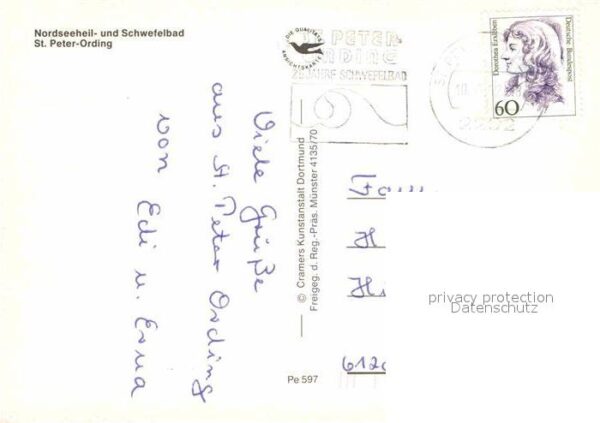 Nordseeheil- und Schwefelbad
St. Peter-Ording
DIE QUALITÄTS
ANSICHTSKARTE
PETER-
ORDING
25 JAHRE SCHWEFELBAD
2252
Dorothea Erxleben
Deutsche Bundespost
60
Viele Grüße
aus St. Peter Ording
von Edi u. Erna
© Cramers Kunstanstalt Dortmund
Freigeg. d. Reg.-Präs. Münster 4135/70
Pe 597
Fam
H
Hi
612
privacy protection
Datenschutz